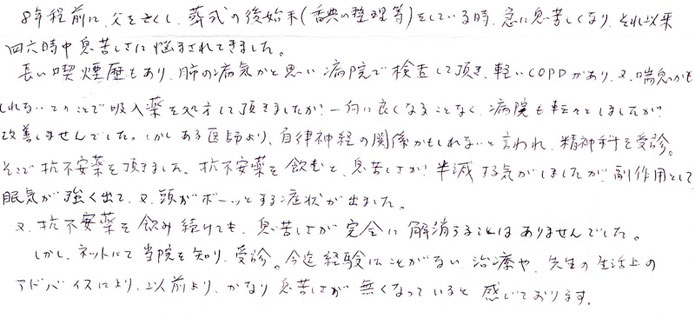 8年程前に、父を亡くし、葬式の後始末(香典の整理等)をしている時、急に息苦しくなり、それ以来
四六時中息苦しさに悩まされてきました。
長い喫煙歴もあり、肺の病気かと思い病院で検査して頂き、軽いCOPDがあり、又、喘息かも
しれないとのことで吸入薬を処方して頂きましたが、一向に良くなることなく、病院も転々としましたが
改善しませんでした。しかしある医師より、自律神経の関係かもしれないと言われ、精神科を受診。
そこで抗不安薬を頂きました。抗不安薬を飲むと、息苦しさが半減する気がしましたが、副作用として
眠気が強く出て、又、頭がボーッとする症状が出ました。
又、抗不安薬を飲み続けても、息苦しさが完全に解消することはありませんでした。
しかし、ネットにて当院を知り、受診。今迄経験したことがない治療や、先生の生活上の
アドバイスにより、以前より、かなり息苦しさが無くなっていると感じております。